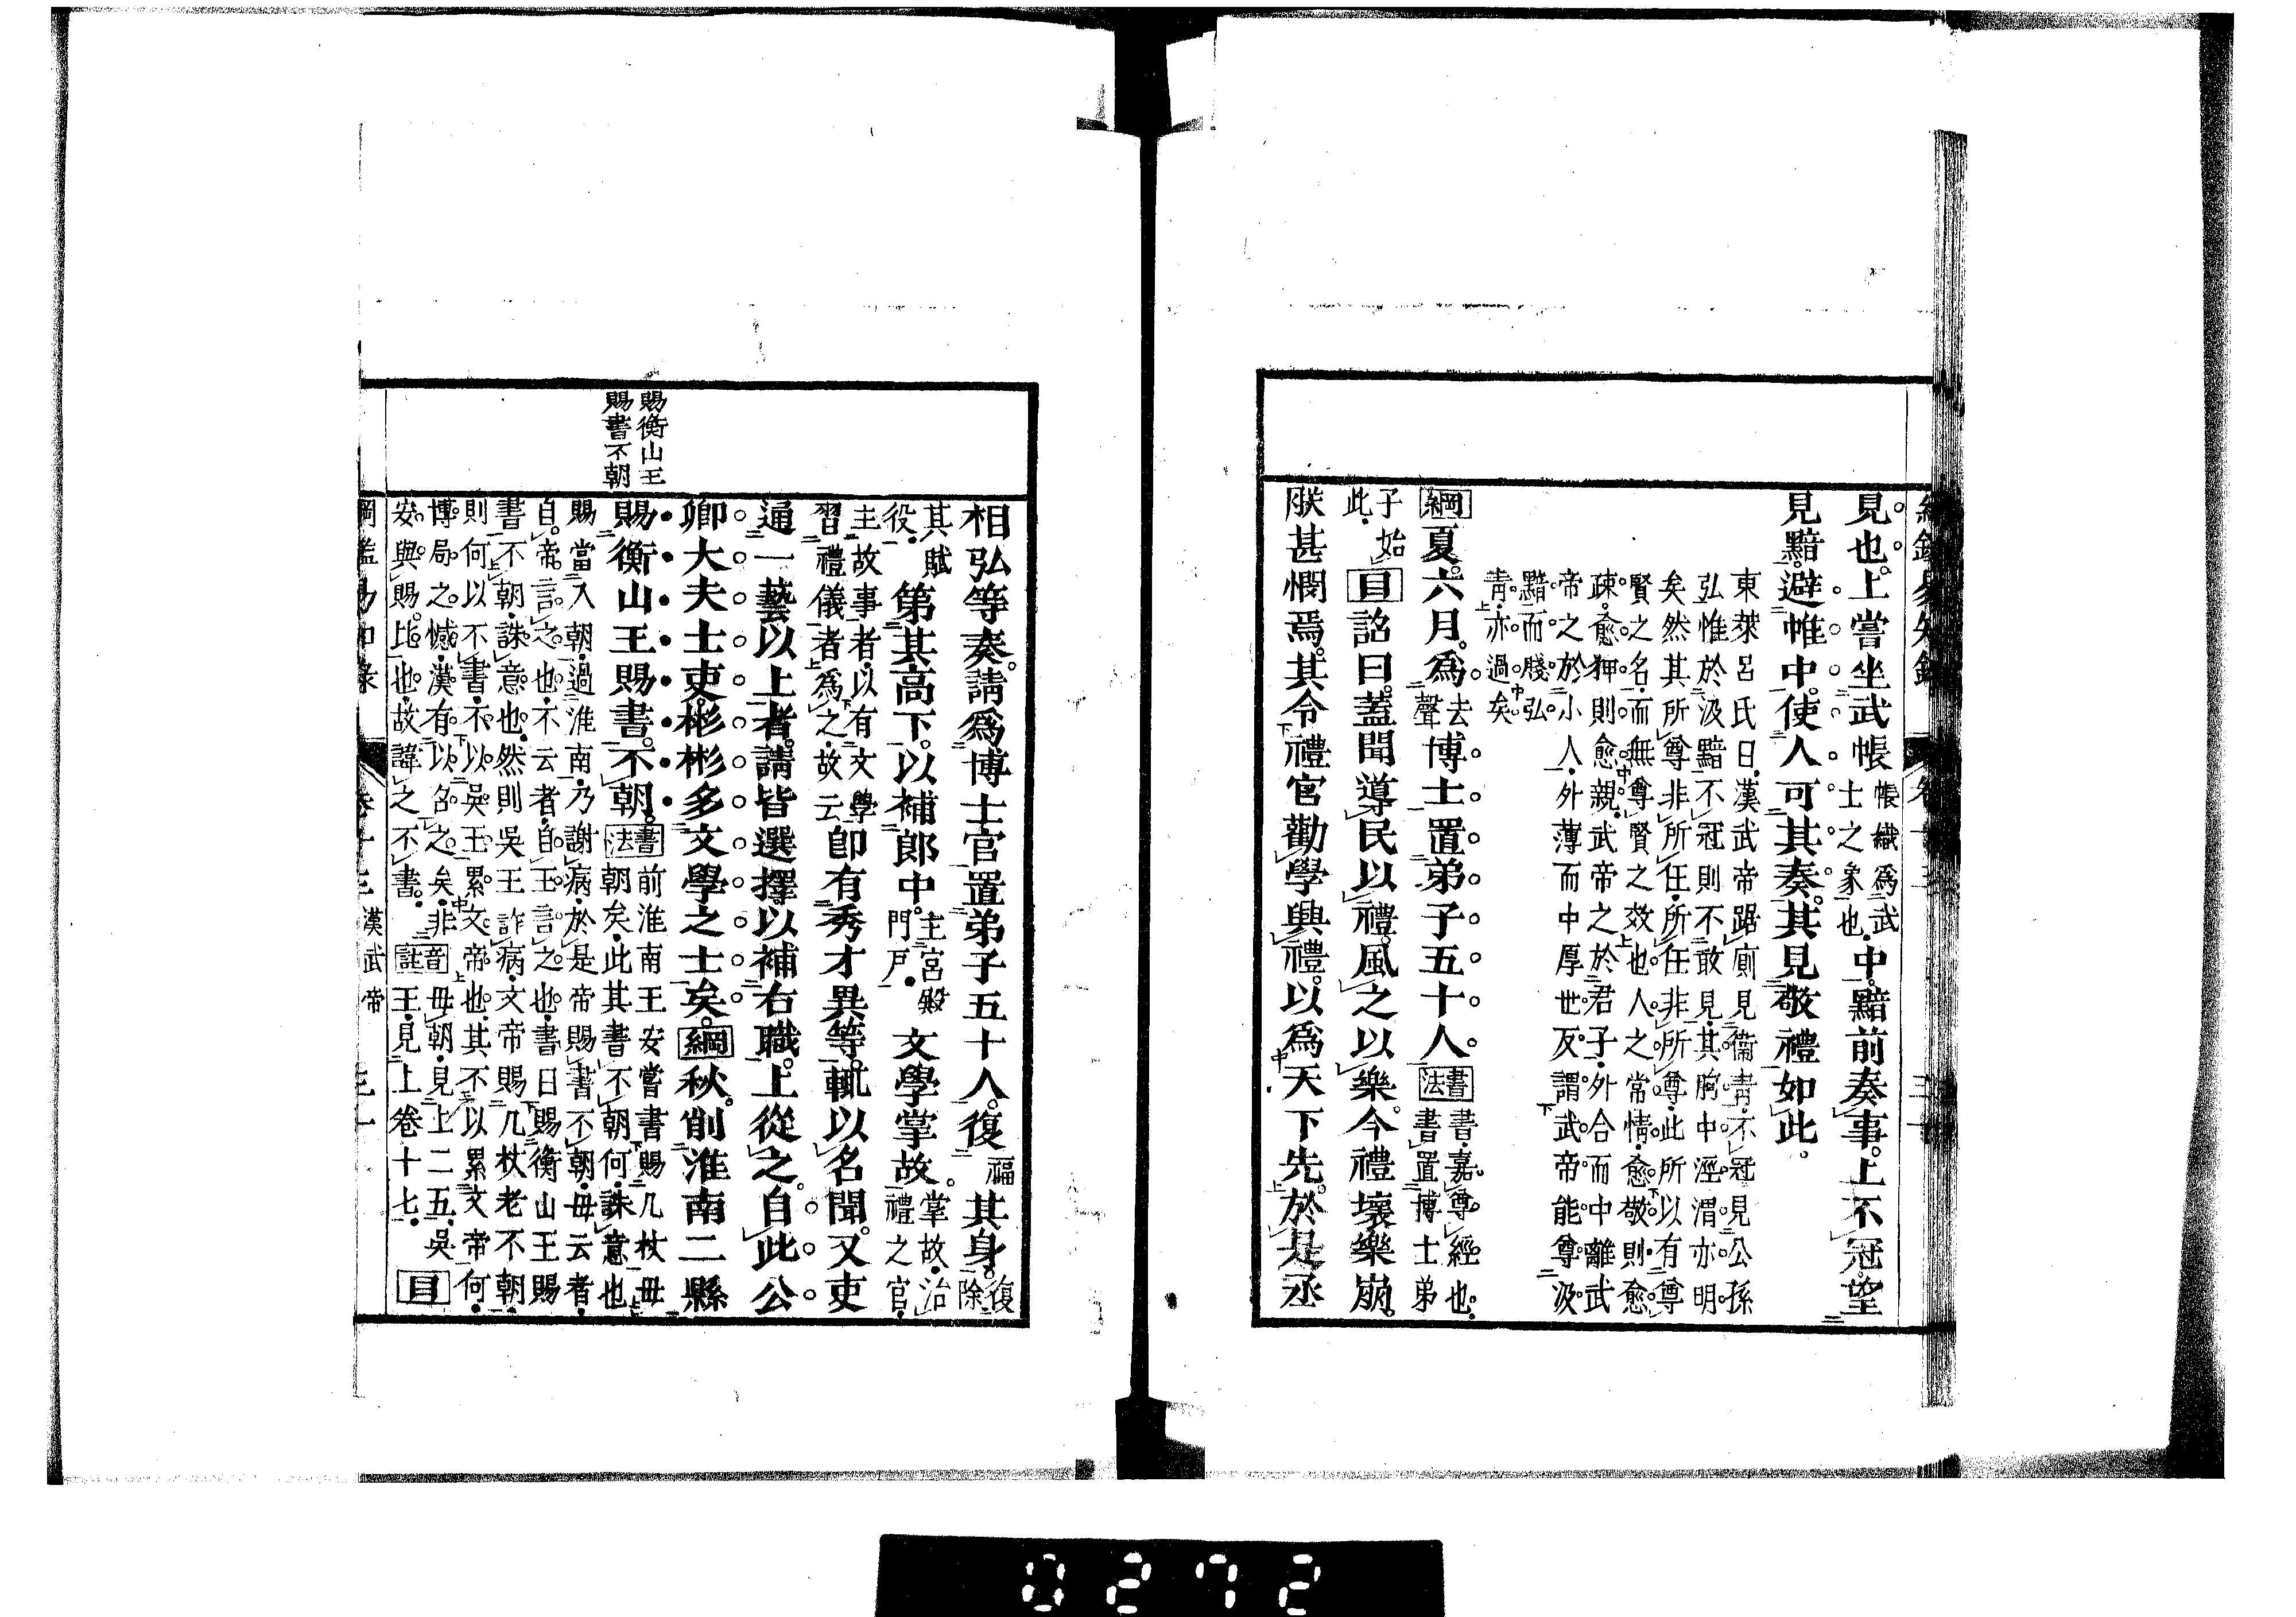 見也。上嘗坐武帳帳織爲武士之象也中。黯前奏事。上不冠。望
見黯。避帷中。使人可其奏。其見敬禮如此。
東萊呂氏曰。漢武帝踞廁見衞青。不冠見公孫
弘。惟於汲黯不冠則不敢見。其胸中涇渭亦明
矣。然其所尊非所任。所任非所尊。此所以有尊
賢之名。而無尊賢之效也。人之常情。愈敬則愈
疎。愈狎則愈親。武帝之於君子。外合而中離。武
帝之於小人。外薄而中厚。世反謂武帝能尊汲
黯。而賤弘
青。亦過矣。
綱夏。六月。爲去聲博士置弟子五十人。書法書。嘉尊經也。書置博士弟
子始此。目詔曰。蓋聞導民以禮。風之以樂。今禮壞樂崩。
朕甚憫焉。其令禮官勸學興禮。以爲天下先。於是丞
賜衡山王
賜書不朝
相弘等奏。請爲博士官置弟子五十人。復福其身。復除
其賦役。第其高下。以補郎中。主宮殿門戶。文學掌故。掌故。治禮之官。
主故事者。以有文學習禮儀者爲之。故云卽有秀才異等。輒以名聞。又吏
通一藝以上者。請皆選擇以補右職。上從之。自此公
卿大夫士吏。彬彬多文學之士矣。綱秋。削淮南二縣
賜衡山王賜書。不朝。書法前淮南王安嘗書賜几杖毋朝矣。此其書不朝何。誅意也。
賜當入朝。過淮南。乃謝病。於是帝賜書不朝。毋云者。
自帝言之也。不云者。自王言之也。書曰賜衡山王賜
書不朝。誅意也。然則吳王詐病。文帝賜几杖老不朝。
則何以不書。不以吳王累文帝也。其不以累文帝何。
博局之憾。漢有以名之矣。非音註毋朝。見上二五。吳
安與賜比也。故諱之不書。王。見上卷十七。目
漢武帝
0272